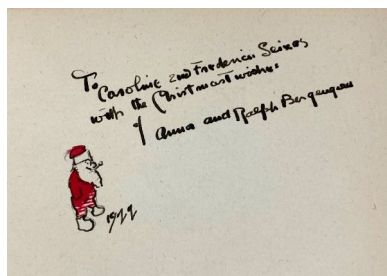 To Caroline and Frederick Seixas
with the Christmast wishes
of Anna and Ralph Bergengren